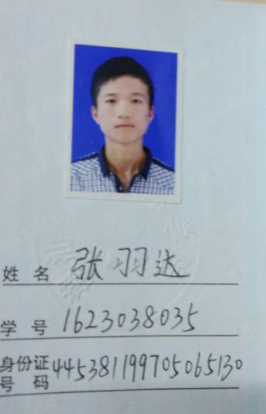 姓名 张羽达
学号 1623038035
身份证号码 445381199705065130